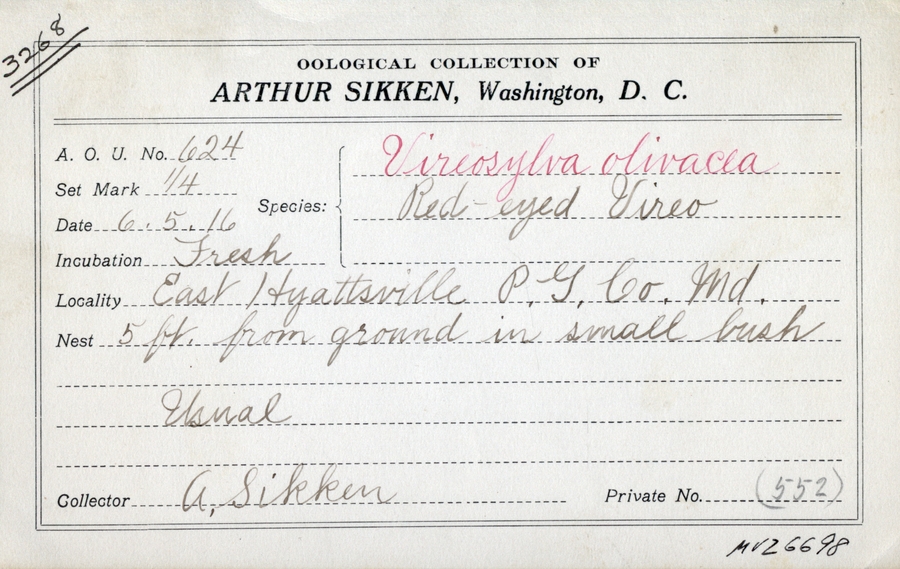 3268
OOLOGICAL COLLECTION OF
ARTHUR SIKKEN, Washington, D. C.
A. O. U. No. 624
Set Mark 1/4
Date 6.5.16
Incubation Fresh
Species: Vireosylva olivacea
Red-eyed Vireo
Locality East Hyattsville P.G. Co. Md.
Nest 5 ft. from ground in small bush
Usual
Collector A. Sikken Private No. (552)
MVZ6698